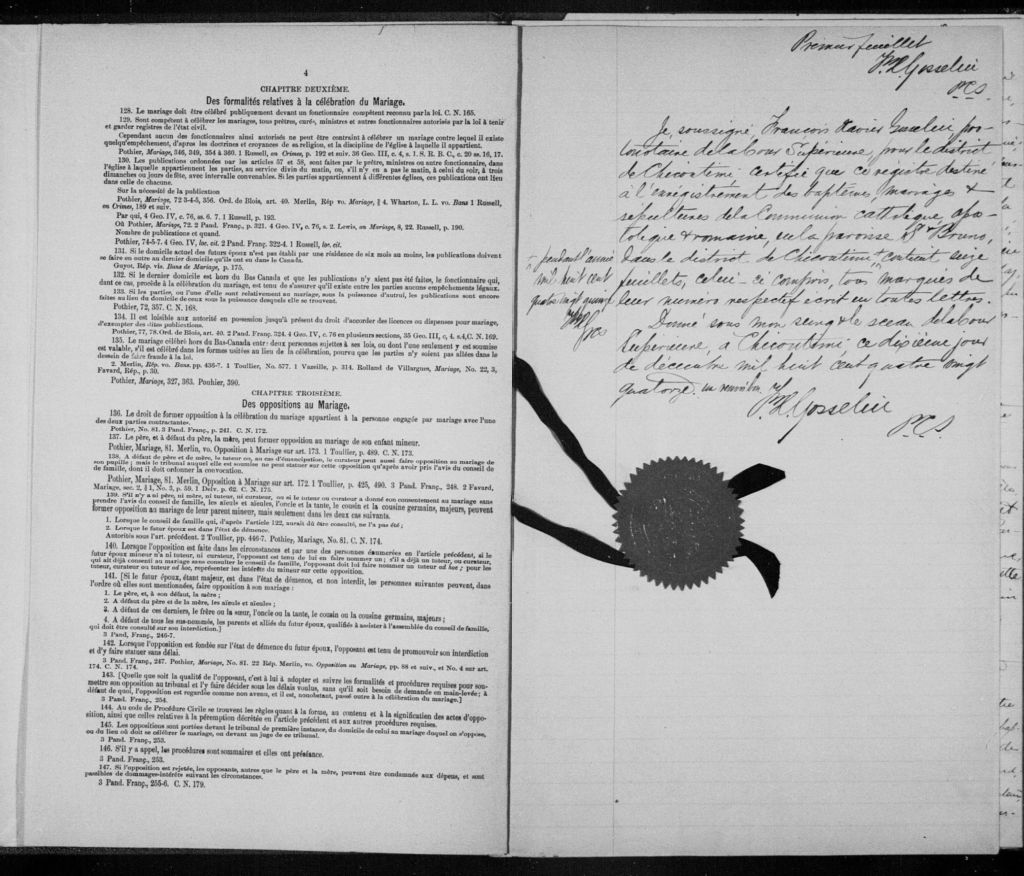 4
CHAPITRE DEUXIÈME.
Des formalités relatives à la célébration du Mariage.
128. Le mariage doit être célébré publiquement devant un fonctionnaire compétent reconnu par la loi. C. N. 165.
129. Sont compétents à célébrer les mariages, tous prêtres, curés, ministres et autres fonctionnaires autorisés par la loi à tenir
et garder registres de l'état civil.
Cependant aucun des fonctionnaires ainsi autorisés ne peut être contraint à célébrer un mariage contre lequel il existe
quelqu'empêchement, d'après les doctrines et croyances de sa religion, et la discipline de l'église à laquelle il appartient.
Pothier, Mariage, 346, 349, 354 à 360. 1 Russell, on Crimes, p. 192 et suiv. 36 Geo. III, c. 4, s. 1. S. R. B. C., c. 20 ss. 16, 17.
130. Les publications ordonnées par les articles 57 et 58, sont faites par le prêtre, ministre ou autre fonctionnaire, dans
l'église à laquelle appartiennent les parties, au service divin du matin, ou, s'il n'y en a pas le matin, à celui du soir, à trois
dimanches ou jours de fête, avec intervalle convenables. Si les parties appartiennent à différentes églises, ces publications ont lieu
dans celle de chacune.
Sur la nécessité de la publication
Pothier, Mariage, 72 3-4-5, 356. Ord. de Blois, art. 40. Merlin, Rép vo. Mariage, § 4. Wharton, L. L. vo. Bans 1 Russell,
on Crimes, 189 et suiv.
Par qui, 4 Geo. IV, c. 76, ss. 6. 7. 1 Russell, p. 193.
Où Pothier, Mariage, 72. 2 Pand. Franç., p. 321. 4 Geo. IV, c. 76, s. 2. Lewis, on Mariage, 8, 22. Russell, p. 190.
Nombre de publications et quand.
Pothier, 74-5-7. 4 Geo. IV, loc. cit. 2 Pand. Franç. 322-4. 1 Russell, loc. cit.
131. Si le domicile actuel des futurs époux n'est pas établi par une résidence de six mois au moins, les publications doivent
se faire en outre au dernier domicile qu'ils ont eu dans le Canada.
Guyot, Rép. vis. Bans de Mariage, p. 175.
132. Si le dernier domicile est hors du Bas Canada et que les publications n'y aient pas été faites, le fonctionnaire qui,
dant ce cas, procède à la célébration du mariage, est tenu de s'assurer qu'il existe entre les parties aucuns empêchements légaux.
133. Si les parties, ou l'une d'elle sont relativement au mariage, sous la puissance d'autrui, les publications sont encore
faites au lieu du domicile de ceux sous la puissance desquels elle se trouvent.
Pothier, 72, 357. C. N. 168.
134. Il est loisibles aux autorité en possession jusqu'à présent du droit d'accorder des licences ou dispenses pour mariage,
d'exempter des dites publications.
Pothier, 77, 78. Ord. de Blois, art. 40. 2 Pand. Franç. 324. 4 Geo. IV, c. 76 en plusieurs sections, 35 Geo. III, c, 4, s.4, C. N. 169.
135. Le mariage célébré hors du Bas-Canada entre deux personnes sujettes à ses lois, ou dont l'une seulement y est soumise
est valable, s'il est célébré dans les formes usitées au lieu de la célébration, pourvu que les parties n'y soient pas allées dans le
dessein de faire fraude à la loi.
2. Merlin, Rép. vo. Bans, p. 436-7. 1 Toullier, No. 577. 1 Vazeille, p. 314. Rolland de Villargues, Mariage, No. 22, 3,
Favard, Rép., p. 30.
Pothier, Mariage, 327, 363. Pouhier, 390.
CHAPITRE TROISIÈME.
Des oppositions au Mariage.
136. Le droit de former opposition à la célébration du mariage appartient à la personne engagée par mariage avec l'une
des deux parties contractantes.
Pothier, No. 81. 3 Pand. Franç., p. 241. C. N. 172.
137. Le père, et à défaut du père, la mère, peut former opposition au mariage de son enfant mineur.
Pothier, Mariage, 81. Merlin, vo. Opposition à Mariage sur art. 173. 1 Toullier, p. 489. C. N. 173.
138. A défaut de père et de mère, le tuteur ou, au cas d'émancipation, le curateur peut aussi faire opposition au mariage de
son pupille; mais le tribunal auquel elle est soumise ne peut statuer sur cette opposition qu'après avoir pris l'avis du conseil de
famille, dont il doit ordonner la convocation.
Pothier, Mariage, 81. Merlin, Opposition à Mariage sur art. 172. 1 Toullier, p. 425, 490. 3 Pand. Franç., 248. 2 Favard,
Mariage, sec. 2, § 1, No. 3, p. 59. 1 Delv. p. 62. C. N. 175.
139. S'il n'y a ni père, ni mère, ni tuteur, ni curateur, ou si le tuteur ou curateur a donné son consentement au mariage sans
prendre l'avis du conseil de famille, les aïeuls et aïeules, l'oncle et la tante, le cousin et la cousine germains, majeurs, peuvent
former opposition au mariage de leur parent mineur, mais seulement dans les deux cas suivants.
1. Lorsque le conseil de famille qui, d'après l'article 122, aurait dû être consulté, ne l'a pas été;
2. Lorsque le futur époux est dans l'état de démence.
Autorités sous l'art. précédent. 2 Toullier, pp. 446-7. Pothier, Mariage, No. 81. C. N. 174.
140. Lorsque l'opposition est faite dans les circonstances et par une des personnes énumérées en l'article précédent, si le
futur époux mineur n'a ni tuteur, ni curateur, l'opposant est tenu de lui en faire nommer un; s'il a déjà un tuteur, ou curateur,
qui ait déjà consenti au mariage sans consulter le conseil de famille, l'opposant doit lui faire nommer un tuteur ad hoc; pour les
tuteur, curateur ou tuteur ad hoc, représenter les intérêts du mineur sur cette opposition.
141. [Si le futur époux, étant majeur, est dans l'état de démence, et non interdit, les personnes suivantes peuvent, dans
l'ordre où elles sont mentionnées, faire opposition à son mariage:
1. Le père, et, à son défaut, la mère;
2. A défaut du père et de la mère, les aïeuls et aïeules;
3. A défaut de ces derniers, le frère ou la sœur, l'oncle ou la tante, le cousin ou la cousine germains, majeurs;
4. A défaut de tous les sus-nommés, les parents et alliés du futur époux, qualifiés à assister à l'assemblée du conseil de famille,
qui doit être consulté sur son interdiction.]
3 Pand, Franç., 246-7.
142. Lorsque l'opposition est fondée sur l'état de démence du futur époux, l'opposant est tenu de promouvoir son interdiction
et d'y faire statuer sans délai.
3 Pand. Franç., 247. Pothier, Mariage, No. 81. 22 Rép. Merlin, vo. Opposition au Mariage, pp. 88 et suiv., et No. 4 sur art.
174. C. N. 174.
143. [Quelle que soit la qualité de l'opposant, c'est à lui à adopter et suivre les formalités et procédures requises pour sou-
mettre son opposition au tribunal et l'y faire décider sous les délais voulus, sans qu'il soit besoin de demande en main-levée; à
défaut de quoi, l'opposition est regardée comme non avenu, et il est, nonobstant, passé outre à la célébration du mariage.]
3 Pand. Franç., 254.
144. Au code de Procédure Civile se trouvent les règles quant à la forme, au contenu et à la signification des actes d'oppo-
sition, ainsi que celles relatives à la péremption décrétée en l'article précédent et aux autres procédures requises.
145. Les oppositions sont portées devant le tribunal de première instance, du domicile de celui au mariage duquel on s'oppose,
ou du lieu où doit se célébrer le mariage, ou devant un juge de ce tribunal.
3 Pand. Franç., 253.
146. S'il y a appel, les procédures sont sommaires et elles ont préséance.
3 Pand. Franç., 253.
147. Si l'opposition est rejetée, les opposants, autres que le père et la mère, peuvent être condamnés aux dépens, et sont
passibles de dommages-intérêts suivant les circonstances.
3 Pand. Franç., 255-6. C. N. 179.
Premier feuillet
F. X. Gosselin
P.C.S.
Je, soussigné, Francois Xavier Gosselin pro-
tonotaire de la Cour Supérieure, pour le district
de Chicoutimi certifie que ce registre destiné
à l'enrégistrement des baptêmes, mariages &
sépultures de la Communion catholique, apos-
tolique & romaine, en la paroisse St Bruno,
dans le district de Chicoutimi + contient seize
feuillets, celui-ci compris, tous marqués de
leur numéro respectif écrit en toutes lettres.
+ pendant l'année
mil huit cent
quatre vingt quinze
F.X.G.
P.C.S.
Donné sous mon seing & le sceau de la Cour
Supérieure, à Chicoutimi, ce dixième jour
de décembre mil huit cent quatre vingt
quatorze. un renvoi bon
F. X. Gosselin
P.C.S.